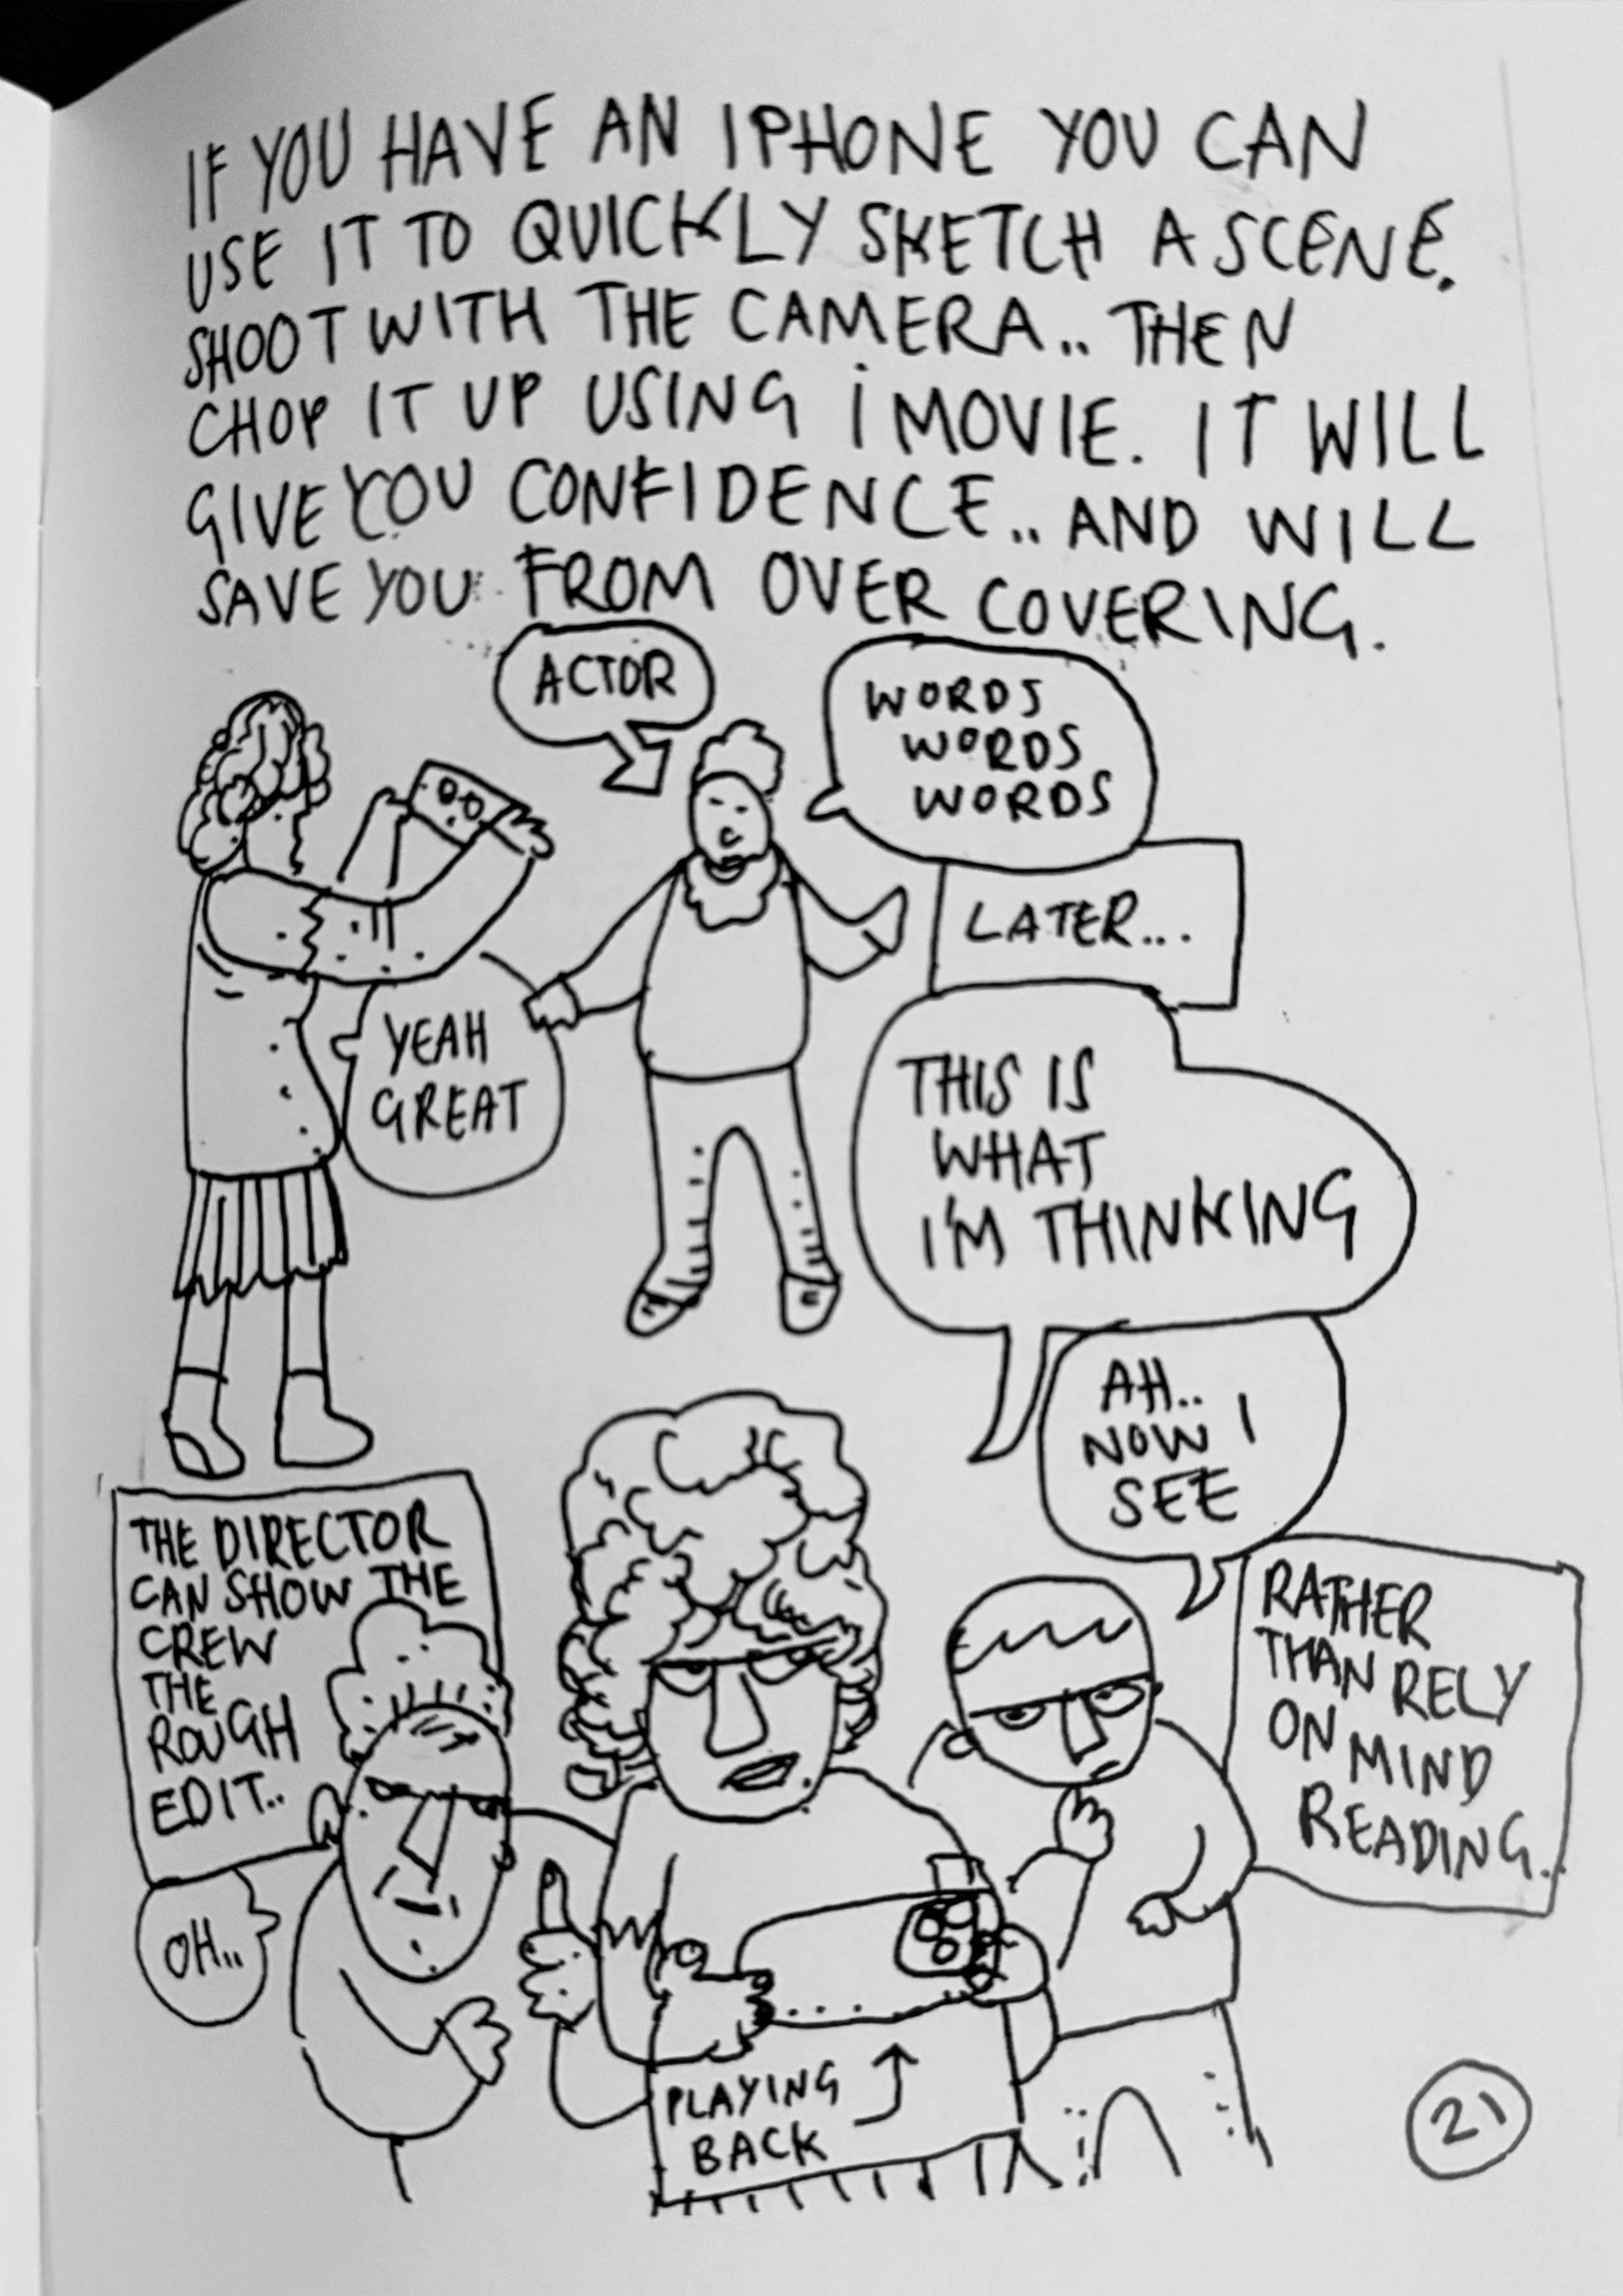 IF YOU HAVE AN IPHONE YOU CAN
USE IT TO QUICKLY SKETCH A SCENE.
SHOOT WITH THE CAMERA.. THEN
CHOP IT UP USING iMOVIE. IT WILL
GIVE YOU CONFIDENCE.. AND WILL
SAVE YOU FROM OVER COVERING.
ACTOR
WORDS
WORDS
WORDS
YEAH
GREAT
LATER...
THIS IS
WHAT
I'M THINKING
AH..
NOW I
SEE
THE DIRECTOR
CAN SHOW THE
CREW
THE
ROUGH
EDIT..
OH..
RATHER
THAN RELY
ON MIND
READING..
PLAYING
BACK
21